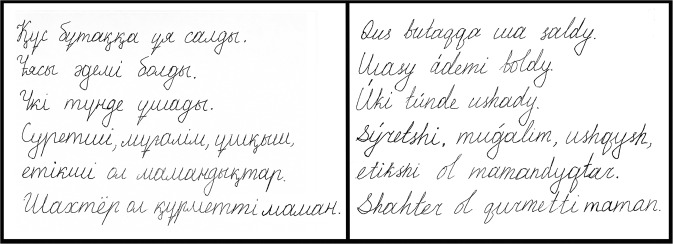 Құс бұтаққа ұя салды.
Ұясы әдемі болды.
Үкі түнде ұшады.
Суретші, мұғалім, ұшқыш,
етікші ол мамандықтар.
Шахтёр ол құрметті маман.
Qus butaqqa ua saldy.
Uasy ádemi boldy.
Úki túnde ushady.
Sýretshi, muǵalim, ushqysh,
etikshi ol mamandyqtar.
Shahter ol qurmetti maman.